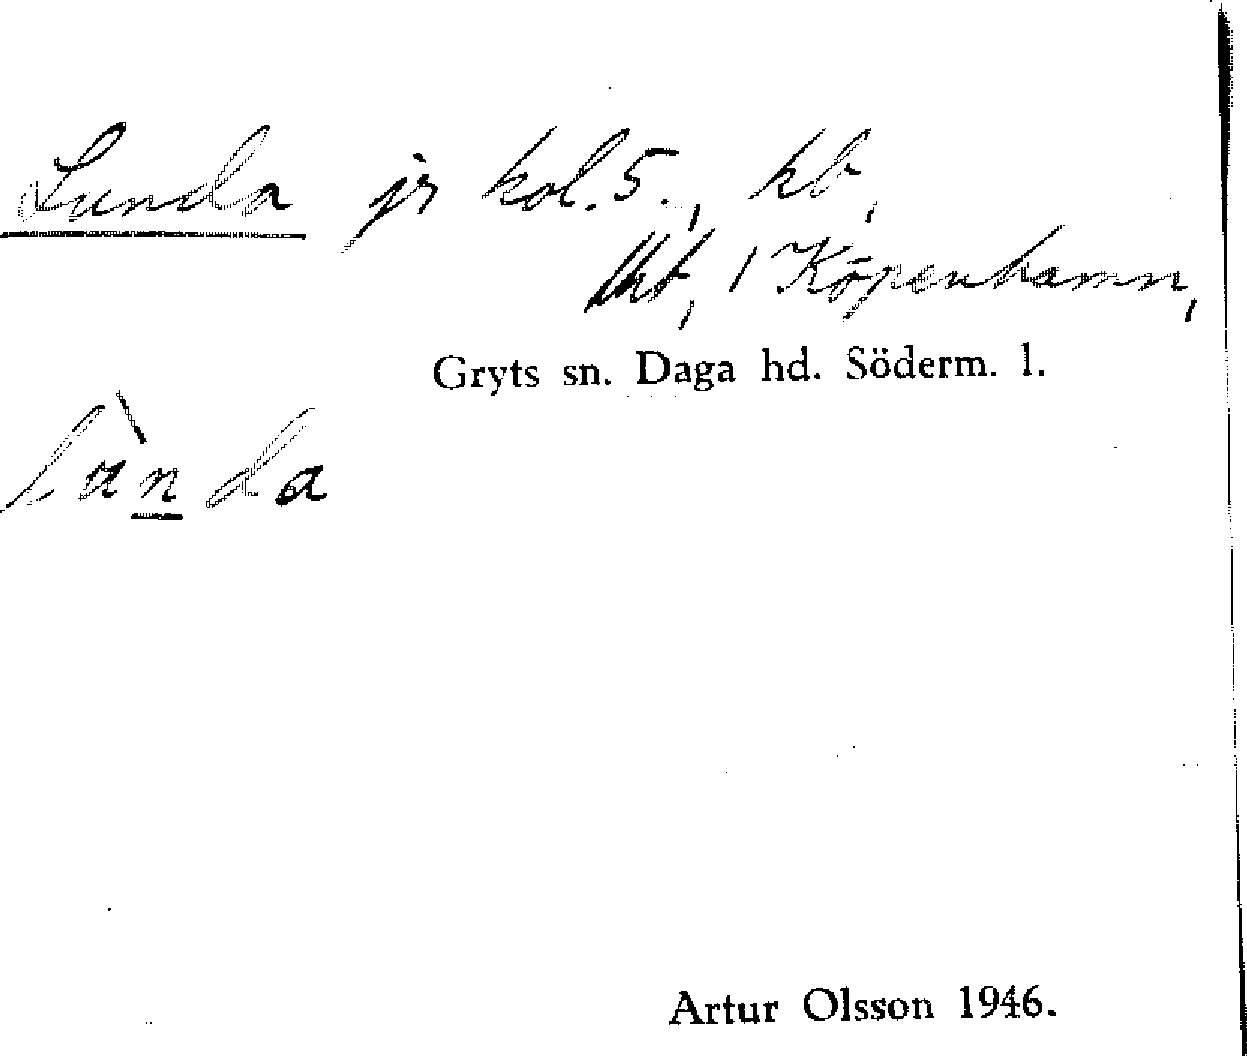 Lunda jr kol. 5., kb,
tkt, 1 Köpenhamn,
Gryts sn. Daga hd. Söderm. l.
lùnda
Artur Olsson 1946.